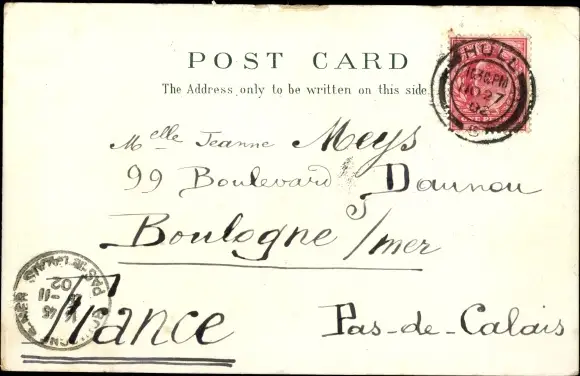 POST CARD
The Address only to be written on this side.
HULL
NO 27
02
Melle Jeanne Meys
99 Boulevard Daunou
Boulogne s/mer
France
Pas-de-Calais
PAS-DE-CALAIS
-11
02